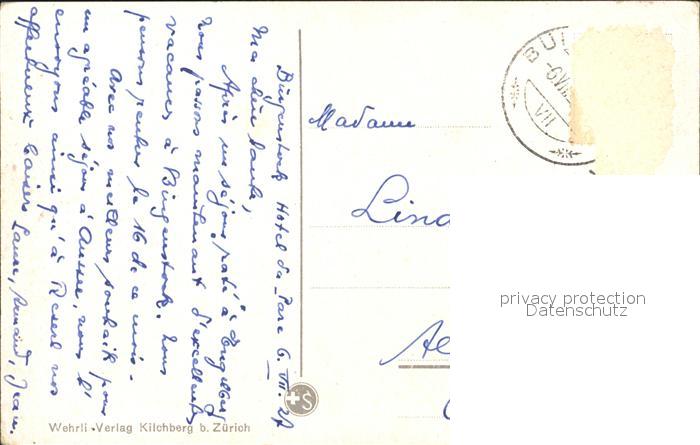 Bürgenstock Hotel du Parc 6. VII. 27
Ma chère Tante,
Après un séjour raté à Engelberg
nous passons maintenant d'excellentes
vacances à Bürgenstock. Nous
pensons rentrer le 16 de ce mois.
Avec nos meilleurs souhaits pour
un agréable séjour à Aussee, nous t'
envoyons ainsi qu'à nos
affectueux baisers Laure, Jean.
Madame
Lind
BÜ
VII
privacy protection
Datenschutz
Wehrli-Verlag Kilchberg b. Zürich
S